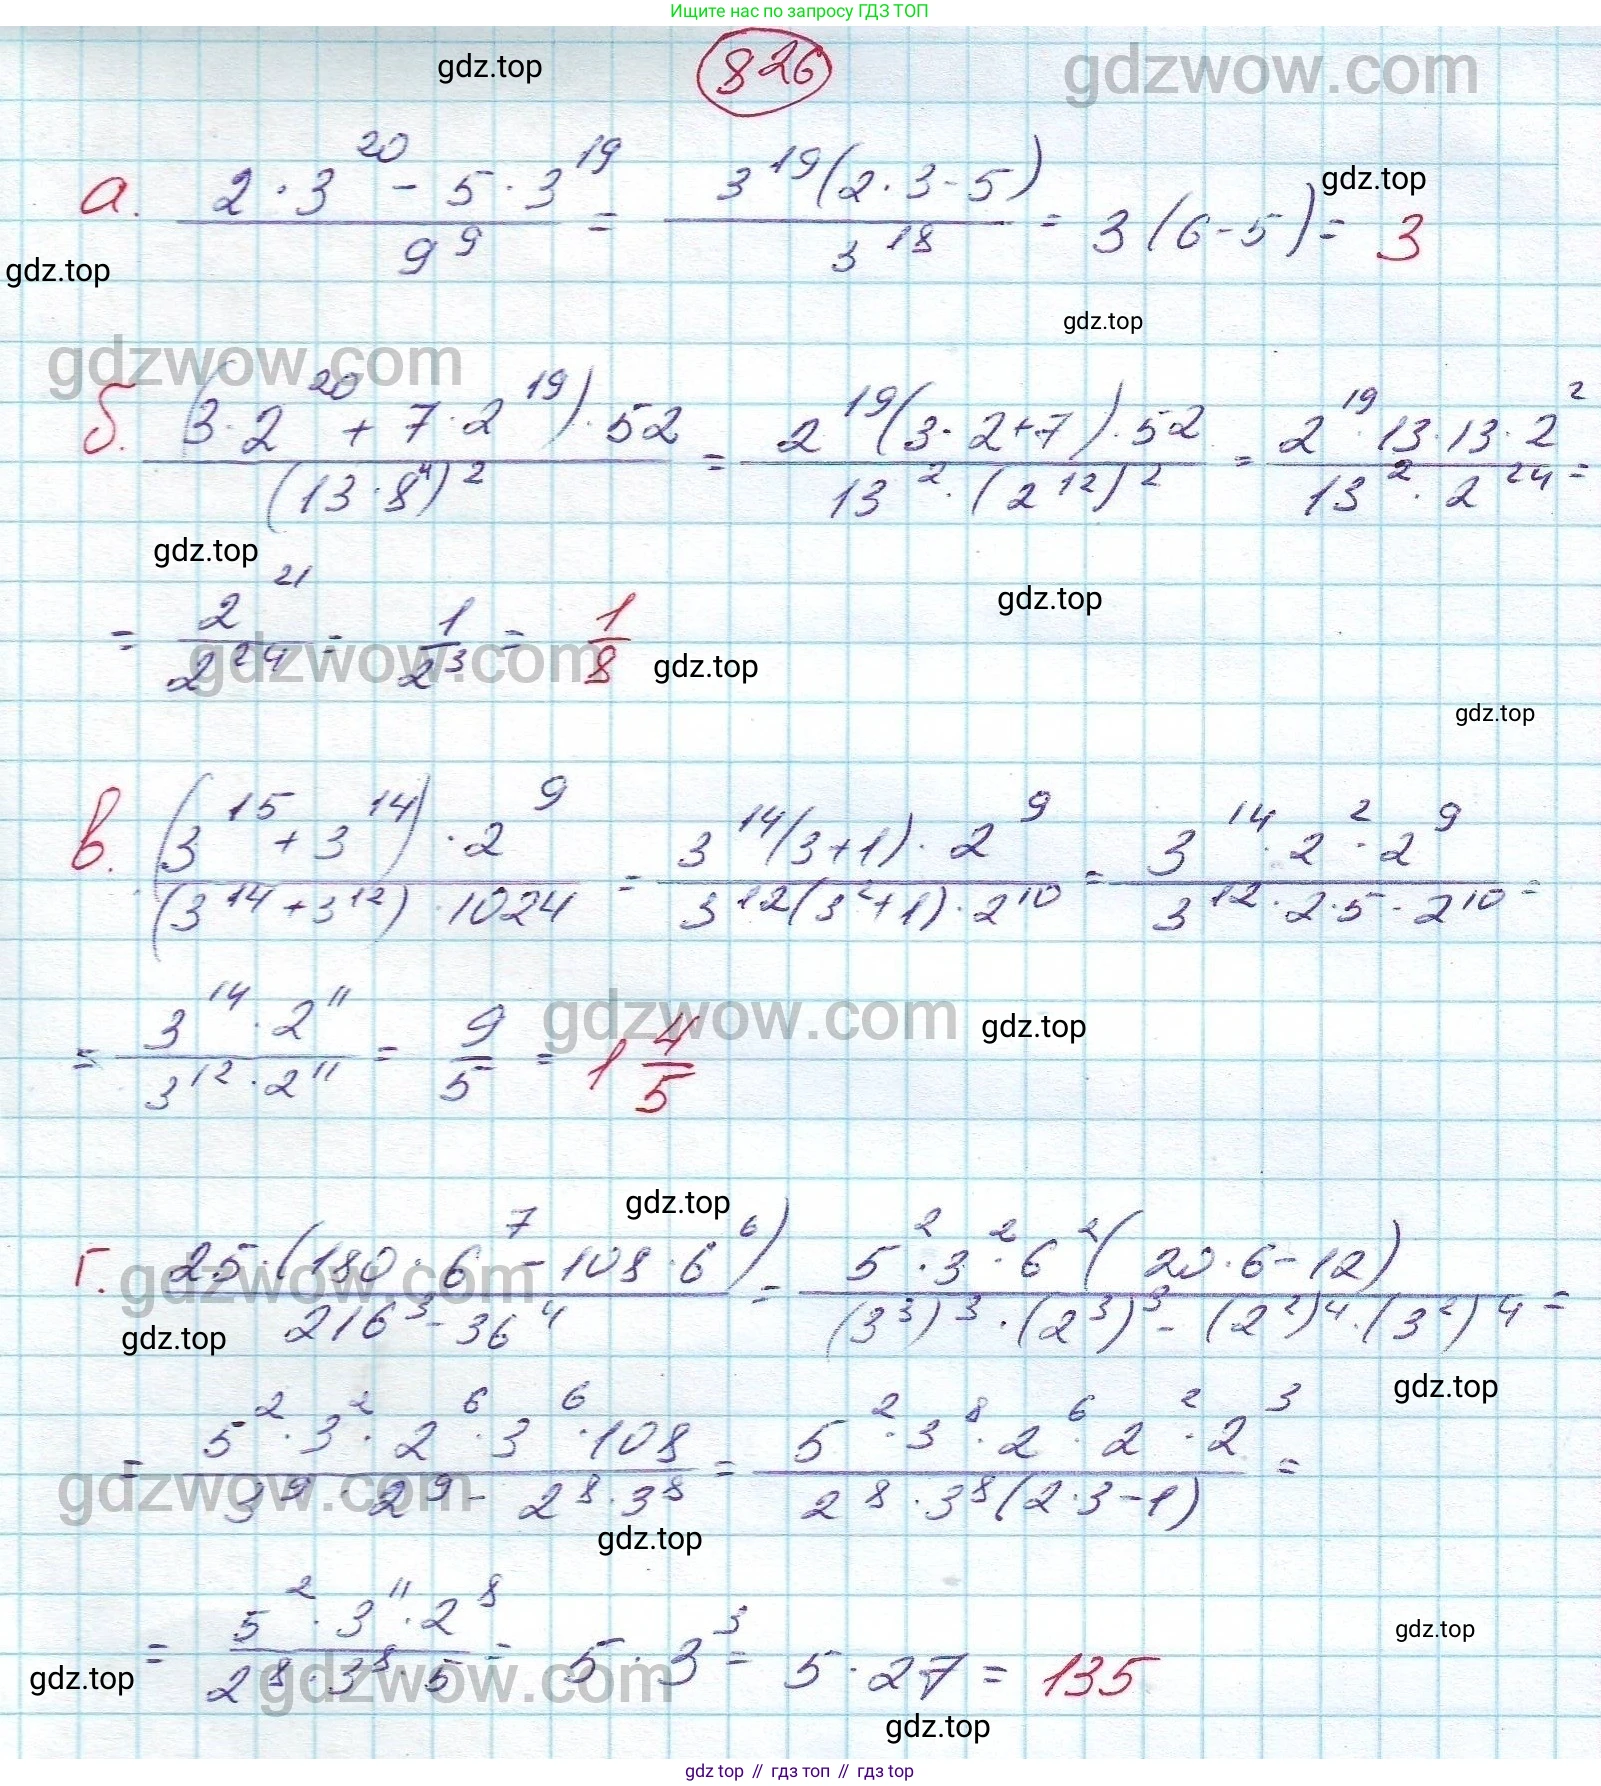 Ищите нас по запросу ГДЗ ТОП
826
gdz.top
gdzwow.com
а. (2 · 3^20 - 5 · 3^19) / 9^9 = 3^19(2 · 3 - 5) / 3^18 = 3(6 - 5) = 3
gdz.top
gdz.top
gdz.top
gdzwow.com
б. (3 · 2^20 + 7 · 2^19) · 52 / (13 · 8^4)^2 = 2^19(3 · 2 + 7) · 52 / 13^2 · (2^12)^2 = 2^19 · 13 · 13 · 2^2 / 13^2 · 2^24 =
gdz.top
gdz.top
= 2^21 / 2^24 = 1 / 2^3 = 1/8
gdzwow.com
gdz.top
gdz.top
в. (3^15 + 3^14) · 2^9 / (3^14 + 3^12) · 1024 = 3^14(3 + 1) · 2^9 / 3^12(3^2 + 1) · 2^10 = 3^14 · 2^2 · 2^9 / 3^12 · 2 · 5 · 2^10 =
= 3^14 · 2^11 / 3^12 · 2^11 = 9/5 = 1 4/5
gdzwow.com
gdz.top
gdz.top
г. 25 · (180 · 6^7 - 108 · 6^6) / 216^3 - 36^4 = 5^2 · 3^2 · 6^2(20 · 6 - 12) / (3^3)^3 · (2^3)^3 - (2^2)^4 · (3^2)^4 =
gdzwow.com
gdz.top
gdz.top
= 5^2 · 3^2 · 2^6 · 3^6 · 108 / 3^9 · 2^9 - 2^8 · 3^8 = 5^2 · 3^8 · 2^6 · 2^2 · 2^3 / 2^8 · 3^8(2 · 3 - 1) =
gdzwow.com
gdz.top
= 5^2 · 3^11 · 2^8 / 2^8 · 3^8 · 5 = 5 · 3^3 = 5 · 27 = 135
gdz.top
gdz.top
gdzwow.com
gdz.top
gdz top // гдз топ // гдз top